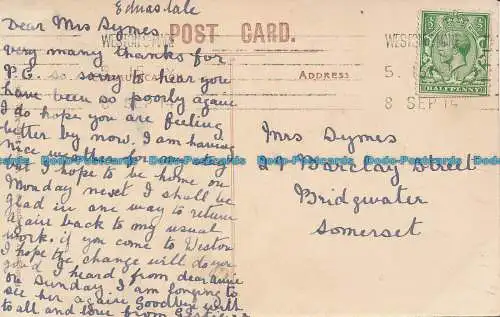 Ednasdale
Dear Mrs Dymes
very many thanks for
P.C. so sorry to hear you
have been so poorly again
I do hope you are feeling
better by now. I am having
nice weather for my stay
but I hope to be home on
Monday next I shall be
glad in one way to return
again back to my usual
work. if you come to Weston
I hope the change will do you
good I heard from dear Annie
on Sunday. I am longing to
see her again Goodbye with
to all and love from
POST CARD.
ADDRESS
WESTON
5.
8 SEP 14
HALFPENNY
Mrs Dymes
29 Barclay Street
Bridgwater
Somerset